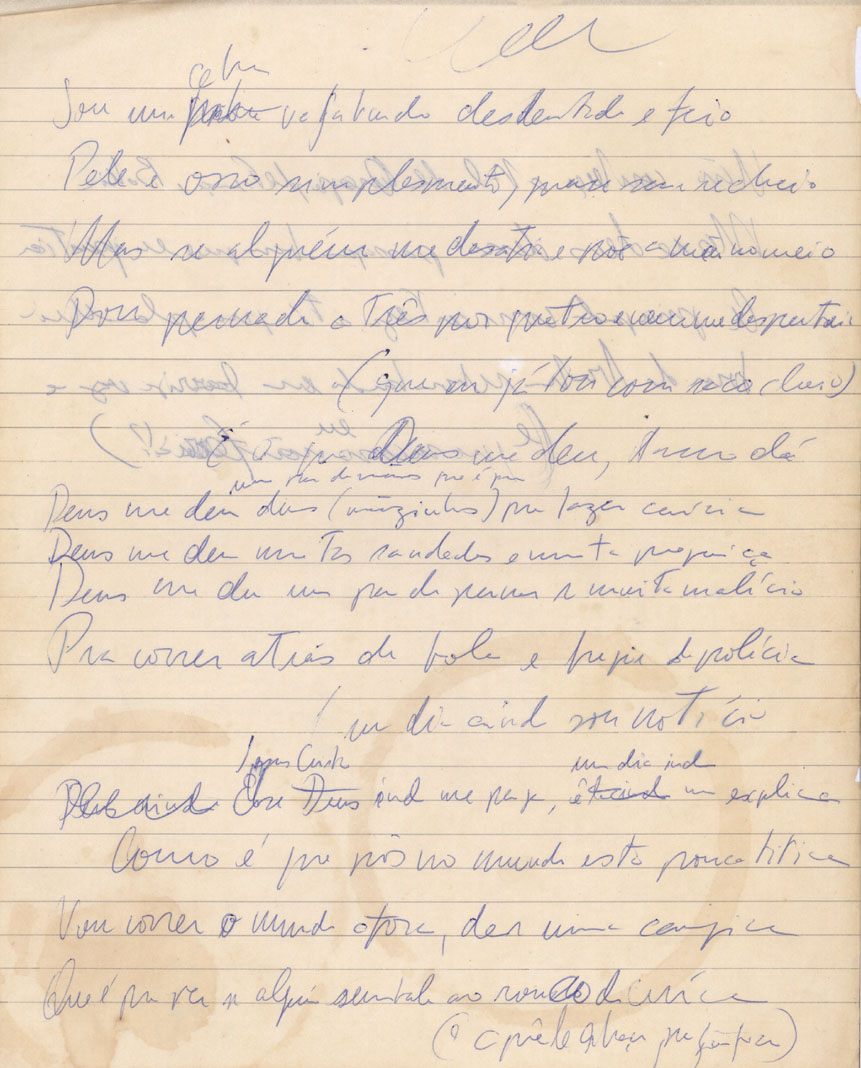 cabra
Sou um pobre vagabundo desdentado e feio
Pele e osso simplesmente, quase sem recheio
Mas se alguém me desafia e põe a mãe no meio
Dou pernada a três por quatro e nem me despenteio
(que eu já tou com saco cheio)
que Deus me deu, dá
um par de mãos que é pra
Deus me deu duas (mãozinhas) pra fazer carícia
Deus me deu muitas saudades e muita preguiça
Deus me deu um par de pernas e muita malícia
Pra correr atrás de bola e fugir da polícia
um dia ainda sou notícia
Jesus Cristo um dia ainda
Deus ainda Esse Deus inda me paga, me explica
Como é que pôs no mundo esta pouca titica
Vou correr o mundo afora, dar uma canjica
Que é pra ver se alguém se embala ao ronco da cuíca
(e aquele abraço, pra quem fica)